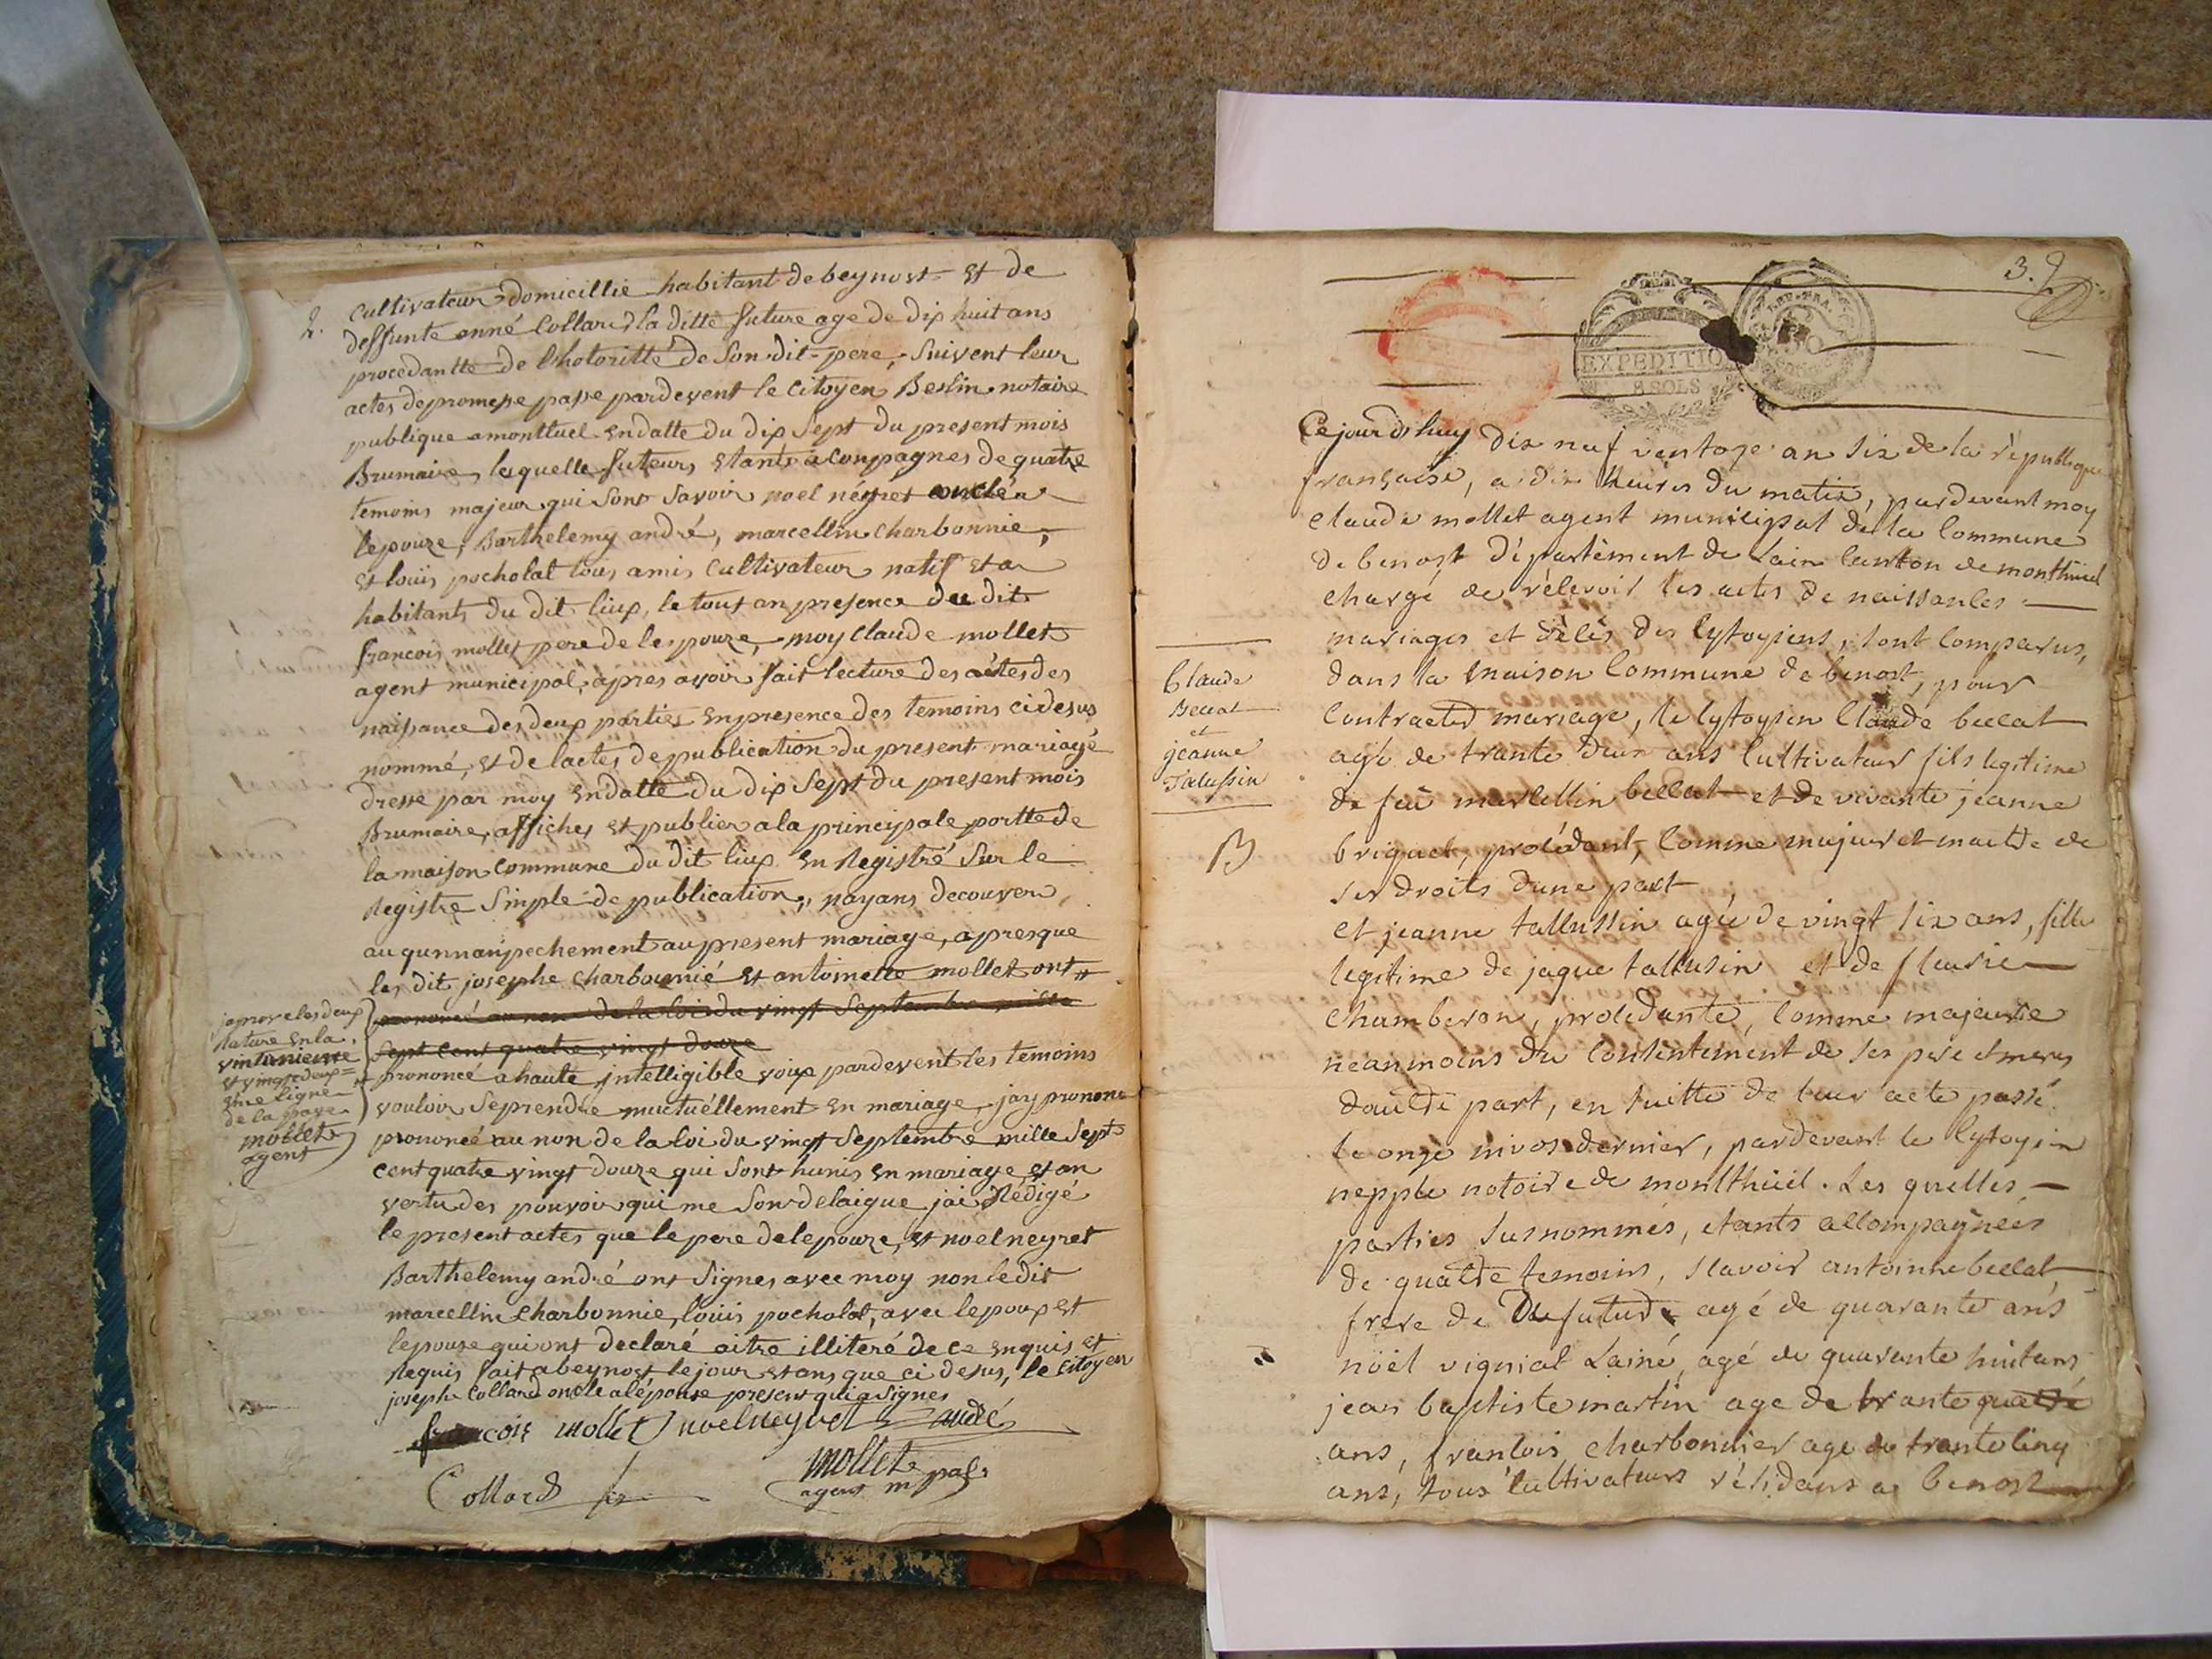 2.
Cultivateur domicillié habitant de beynost et de
deffunte anné Collard la ditte future age de dix huit ans
procedantte de lhotoritté de son dit pere, suivent leur
actes de promesse passe pardevent le citoyen Berlin notaire
publique a montluel en datte du dix sept du present mois
Brumaire, lequelle futeurs etants acompagnes de quatre
temoins majeur qui sont savoir noel néyret oncle a
lepouze, Barthelemy andré, marcellin charbonnie,
et louis pocholat tous amis cultivateur natif et a
habitants du dit lieux, le tous an presence du dit
francois mollet pere de lepouze, moy Claude mollet
agent municipal, apres avoir fait lecture des actes des
naissance des deux parties en presence des temoins ci desus
nommé, et de lactes de publication du present mariagé
dresse par moy en datte du dix sept du present mois
Brumaire, affiches et publier a la principale portte de
la maison commune du dit lieux en Registré sur le
Registre simple de publication, nayans decouver
auqunnanpechement au present mariage, apresque
les dit josephe charbounié et antoinette mollet ont
prononcé au non de la loi du vingt septembre mille
sept cent quatre vingt douze
prononcé a haute intelligible voix pardevent les temoins
vouloir se prendre muctuéllement en mariage, jay prononc
prononcé au non de la loi du vingt septembre mille sept
cent quatre vingt douze qui sont hunis en mariage, et an
vertu des pouvoir qui me son delaigue jai Rédigé
le present actes que le pere de lepouze, et noel neyret
Barthelemy andré ont signes avec moy non le dit
marcellin charbonnie, louis pocholat, avec lepoux et
lepouse qui ont declaré aitre illiteré de ce enquis et
Requis fait a beynost le jour et ans que ci desus, le citoyen
joseph Collard oncle a lépouse present qui a signes
francois mollet noel neyret andé
Collard
mollet
agent mpal
japrove les deux
Rature en la
vintunieme
et vingt deux=
eme ligne
de la page
mollet
agent
3.
EXPEDITION
8 SOLS
REP. FRA.
Ce jour d'huy dix neuf ventoze an six de la république
française, a dix heures du matin, pardevant moy
Claude mollet agent municipal de la Commune
de benost département de Lain Canton de monthuel
chargé de rélevoir les actes de naissances
mariages et délés des Cytoyiens, sont Comparus,
dans la maison Commune de benost, pour
Contracter mariage, le Cytoyien Claude beccat
agé de trante deux ans Cultivateur fils legitime
de feü marcellin beccat et de vivante jeanne
briguet, procédant, Comme majeur et maitre de
ses droits dune part
et jeanne tallussin agée de vingt six ans, fille
legitime de jaque tallusin et de fleurie
Chamberon, procédante, Comme majeure
néanmoins du Consentement de ses pere et meres
dautre part, en suitte de leur acte passé
le onze nivos dernier, pardevant le Cytoyin
nepple notoire de montthuel. Les quelles
parties susnommés, étants accompagnées
de quatre temoins, scavoir antoinne beccat,
frere de du futur agé de quarante ans
nöél vignial Lainé, agé de quarante huit ans
jean baptiste martin age de trante quatre
ans, francois Charbonnier age de trante cinq
ans, tous Cultivateurs résidans a benost
Claude
Beccat
et
jeanne
Talussin
B